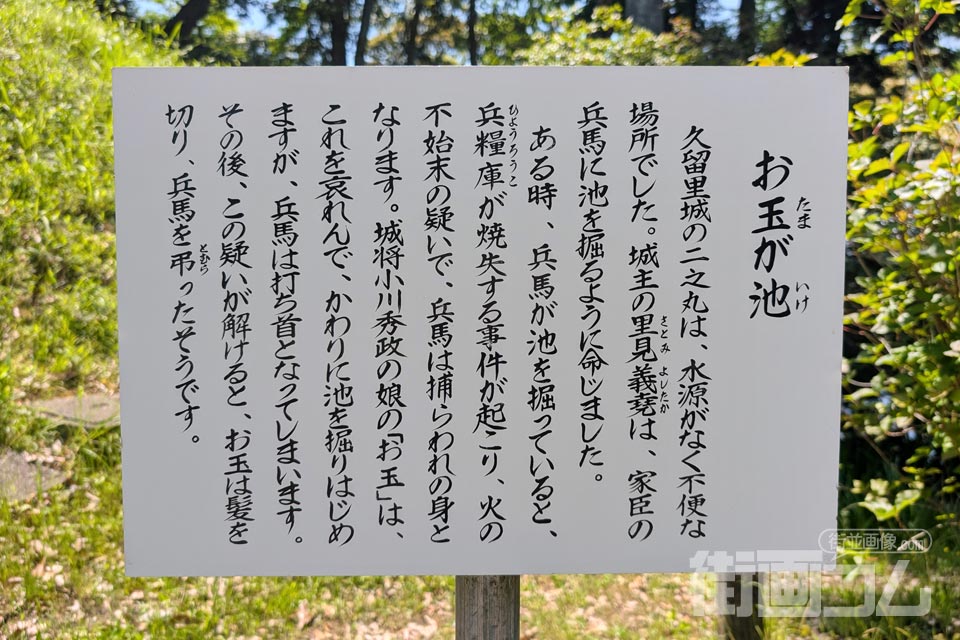 お玉が池
たま
いけ
久留里城の二之丸は、水源がなく不便な
場所でした。城主の里見義堯は、家臣の
さとみ よしたか
兵馬に池を掘るように命じました。
ある時、兵馬が池を掘っていると、
兵糧庫が焼失する事件が起こり、火の
ひょうろうこ
不始末の疑いで、兵馬は捕らわれの身と
なります。城将小川秀政の娘の「お玉」は、
これを哀れんで、かわりに池を掘りはじめ
ますが、兵馬は打ち首となってしまいます。
その後、この疑いが解けると、お玉は髪を
切り、兵馬を弔ったそうです。
とむら
街並画像.com
街画コム